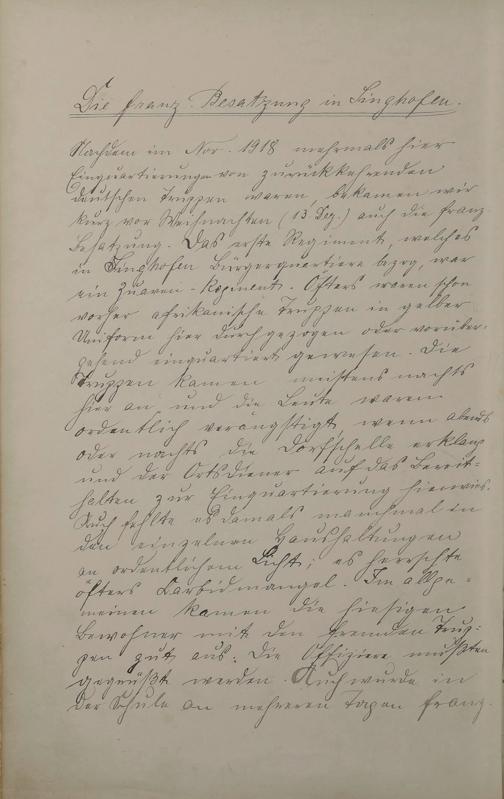 Die franz. Besatzung in Singhofen.
Nachdem im Nov. 1918 mehrmals hier
Einquartierungen von zurückkehrenden
deutschen Truppen waren, bekamen wir
kurz vor Weihnachten (13. Dez.) auch die franz.
Besatzung. Das erste Regiment, welches
in Singhofen Bürgerquartiere bezog, war
ein Zuaven-Regiment. Öfters waren schon
vorher afrikanische Truppen in gelber
Uniform hier durchgezogen oder vorüber-
gehend einquartiert gewesen. Die
Truppen kamen meistens nachts
hier an, und die Leute waren
ordentlich verängstigt, wenn abends
oder nachts die Dorfschelle erklang
und der Ortsdiener auf das Bereit-
halten zur Einquartierung hinwies.
Auch fehlte es damals manchmal in
den einzelnen Haushaltungen
an ordentlichem Licht; es herrschte
öfters Carbidmangel. Im allge-
meinen kamen die hiesigen
Bewohner mit den fremden Trup-
pen gut aus. Die Offiziere mußten
gegrüßt werden. Auch wurde in
der Schule an mehreren Tagen franz.